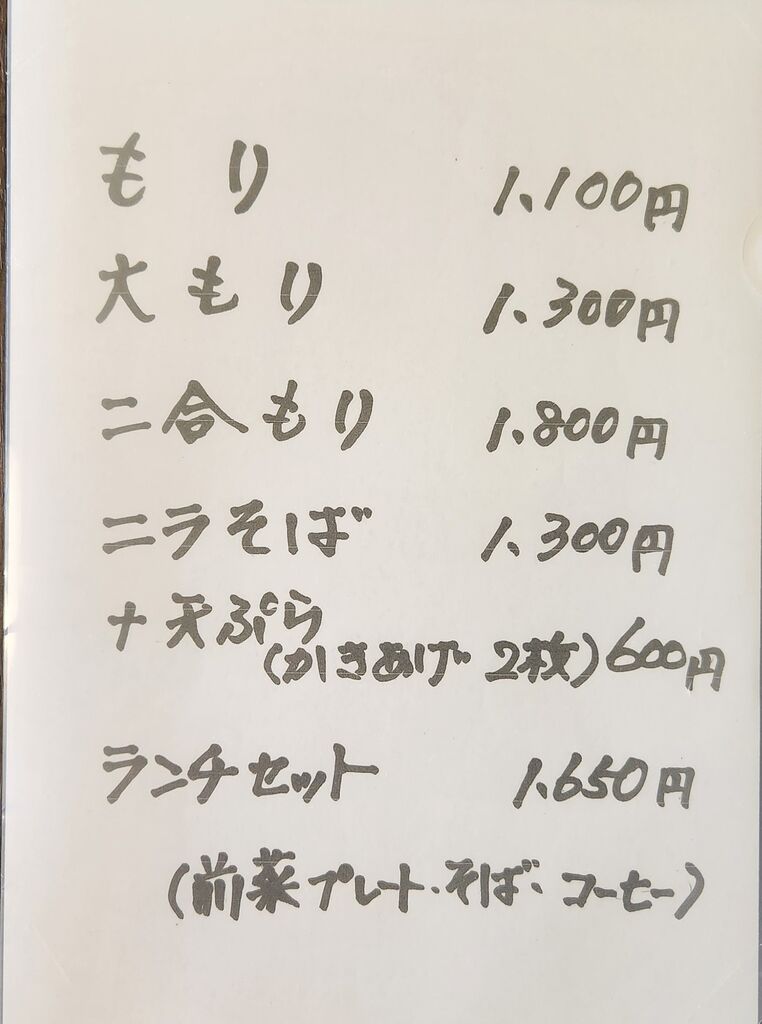 もり 1.100円
大もり 1.300円
二合もり 1.800円
ニラそば 1.300円
+天ぷら
(かきあげ 2枚) 600円
ランチセット 1.650円
(前菜プレート・そば、コーヒー)